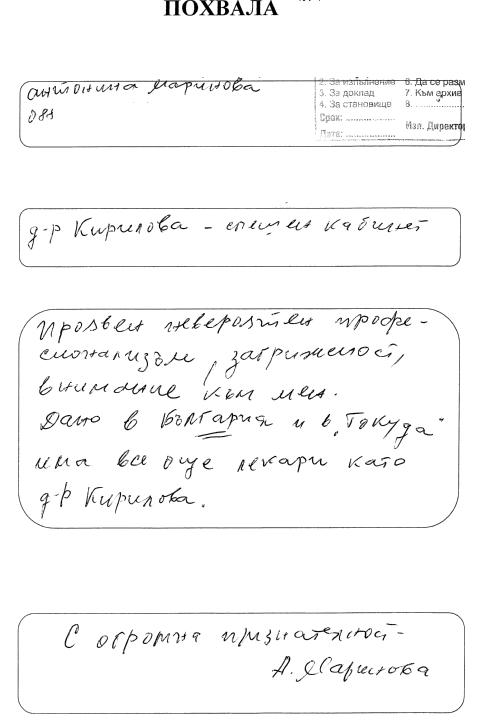 ПОХВАЛА
Антонина Маринова
084
2. За изпълнение 6. Да се разм
3. За доклад 7. Към архив
4. За становище 8. ..................
Срок: ..................
Изп. Директор
Дата: ..................
д-р Кирилова - спешен кабинет
Проявен невероятен профе-
сионализъм, загриженост,
внимание към мен.
Дано в България и в "Токуда"
има все още лекари като
д-р Кирилова.
С огромна признателност -
А. Маринова